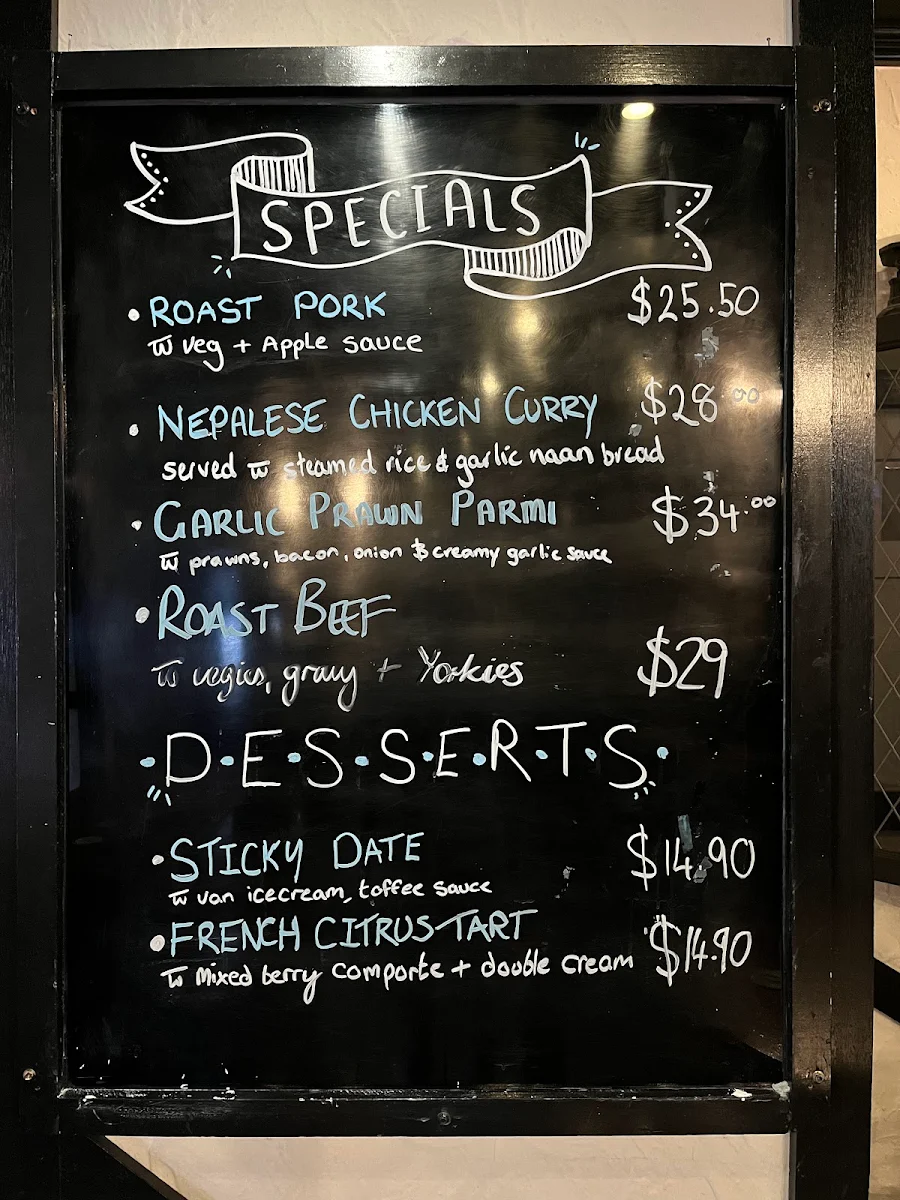 SPECIALS
• ROAST PORK $25.50
w̅ veg + Apple sauce
• NEPALESE CHICKEN CURRY $28.00
served w̅ steamed rice & garlic naan bread
• GARLIC PRAWN PARMI $34.00
w̅ prawns, bacon, onion & creamy garlic sauce
• ROAST BEEF
w̅ vegies, gravy + Yorkies $29
•D•E•S•S•E•R•T•S•
• STICKY DATE $14.90
w̅ van icecream, toffee sauce
• FRENCH CITRUS TART $14.90
w̅ Mixed berry comporte + double cream